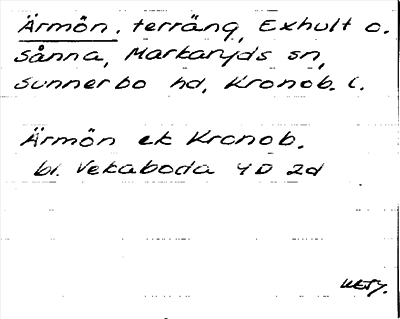 Ärmön, terräng, Exhult o.
Sånna, Markaryds sn,
Sunnerbo hd, Kronob. l.
Ärmön ek Kronob.
bl. Vekaboda 4D 2d